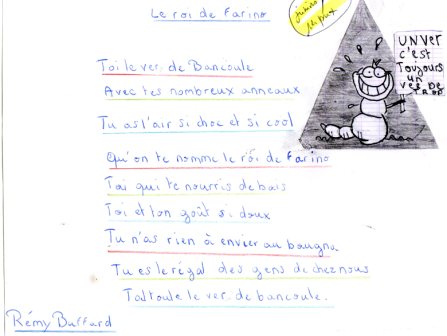 Le roi de Farino
UN VER
C'EST
Toujours
un
VER DE
TROP
Toi le ver de Bancoule
Avec tes nombreux anneaux
Tu as l'air si choc et si cool
Qu'on te nomme le roi de Farino
Toi qui te nourris de bois
Toi et ton goût si doux
Tu n'as rien à envier au bougna
Tu es le régal des gens de chez nous
Toi le ver de bancoule.
Rémy Buffard